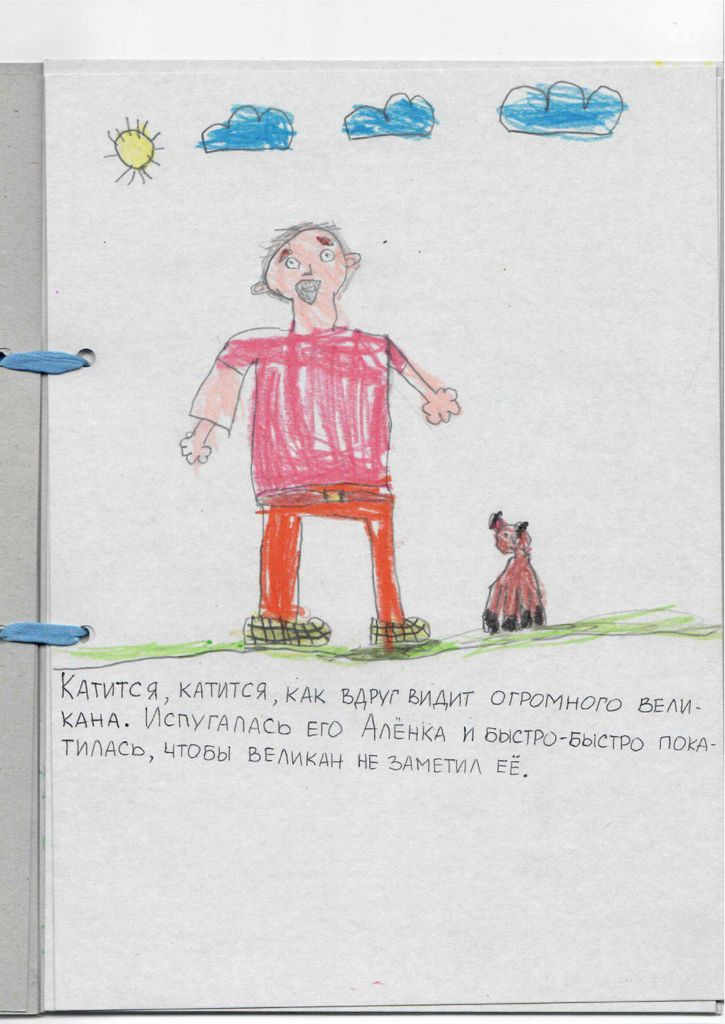 Катится, катится, как вдруг видит огромного вели-
кана. Испугалась его Алёнка и быстро-быстро пока-
тилась, чтобы великан не заметил её.